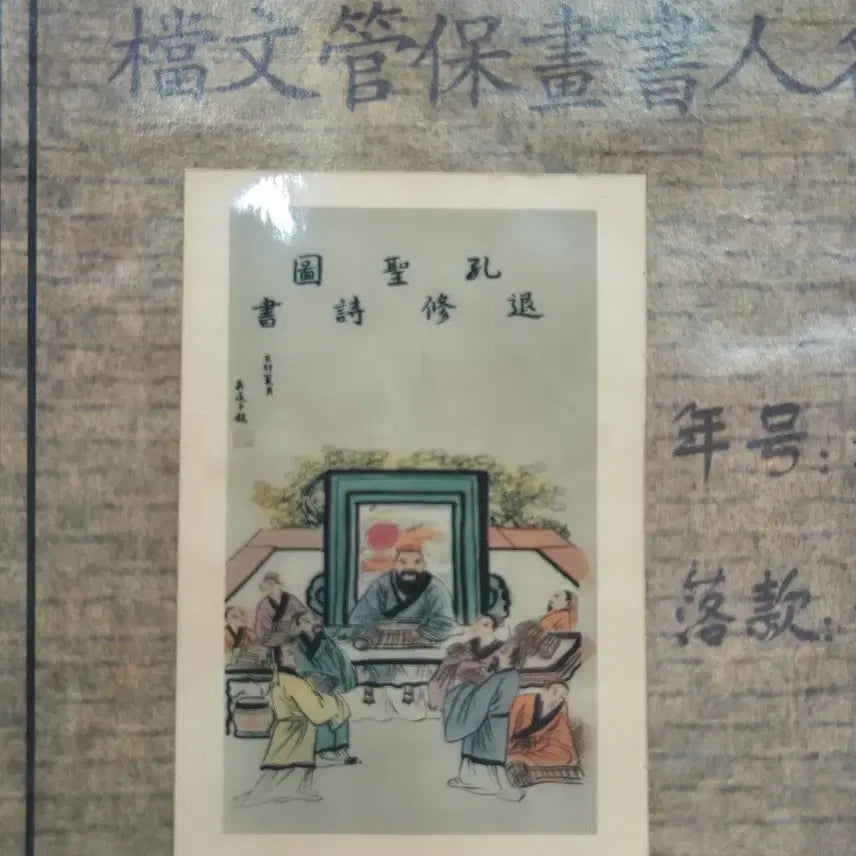 人書畫保管文檔
孔聖圖
退修詩書
年号:
落款: